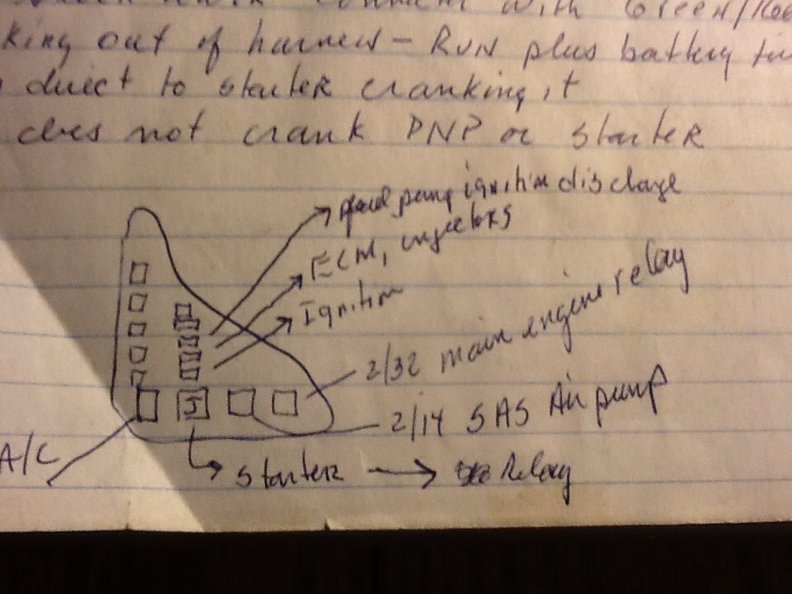 with Green/Red
king out of harness - RUN plus battery
direct to starter cranking it
does not crank PNP or starter
fuel pump ignition discharge
ECM, injectors
Ignition
2/32 main engine relay
2/14 SAS Air pump
A/C
starter → Relay